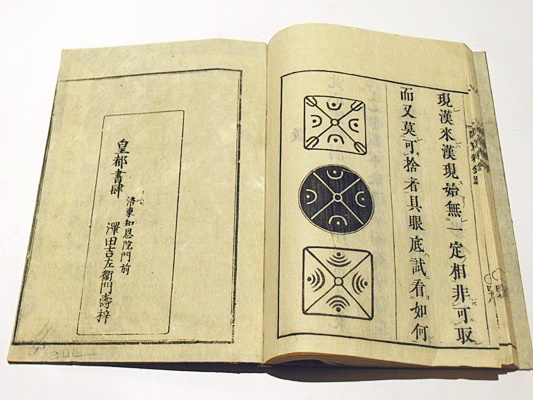 現漢來漢現始無一定相非可取
而又莫可捨者具眼底試看如何
皇都書肆
洛東知恩院門前
澤田吉左衞門壽梓